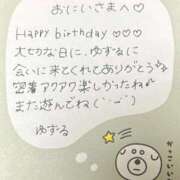 おにいさまへ♡
Happy birthday ♡♡♡
大せつな日に、ゆずるに
会いに来てくれてありがとう
密着アクアク楽しかったね
また遊んでね(˙ᵕ˙)
ゆずる